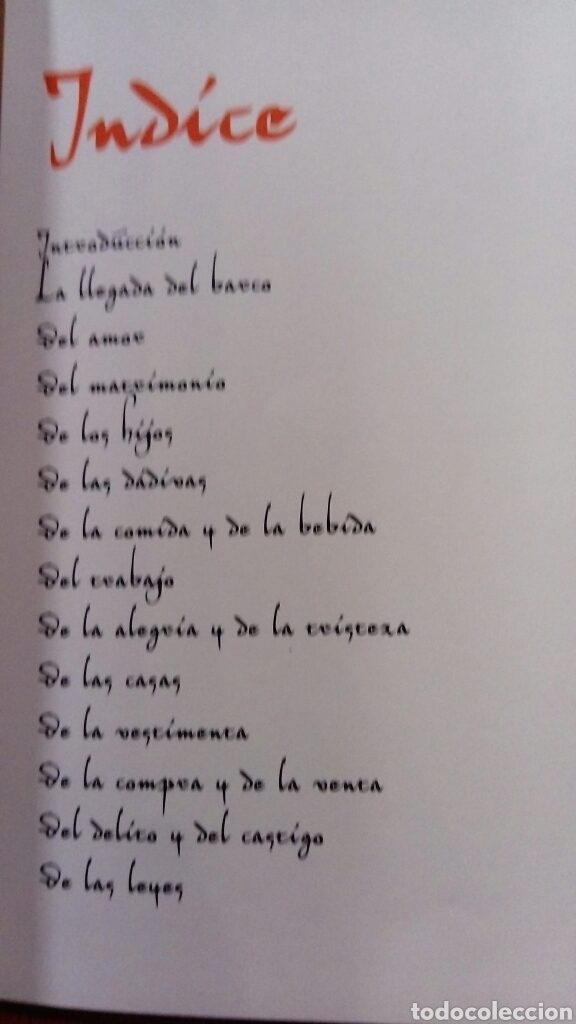 Indice
Introducción
La llegada del barco
Del amor
Del matrimonio
De los hijos
De las dádivas
De la comida y de la bebida
Del trabajo
De la alegría y de la tristeza
De las casas
De la vestimenta
De la compra y de la venta
Del delito y del castigo
De las leyes
todocoleccion